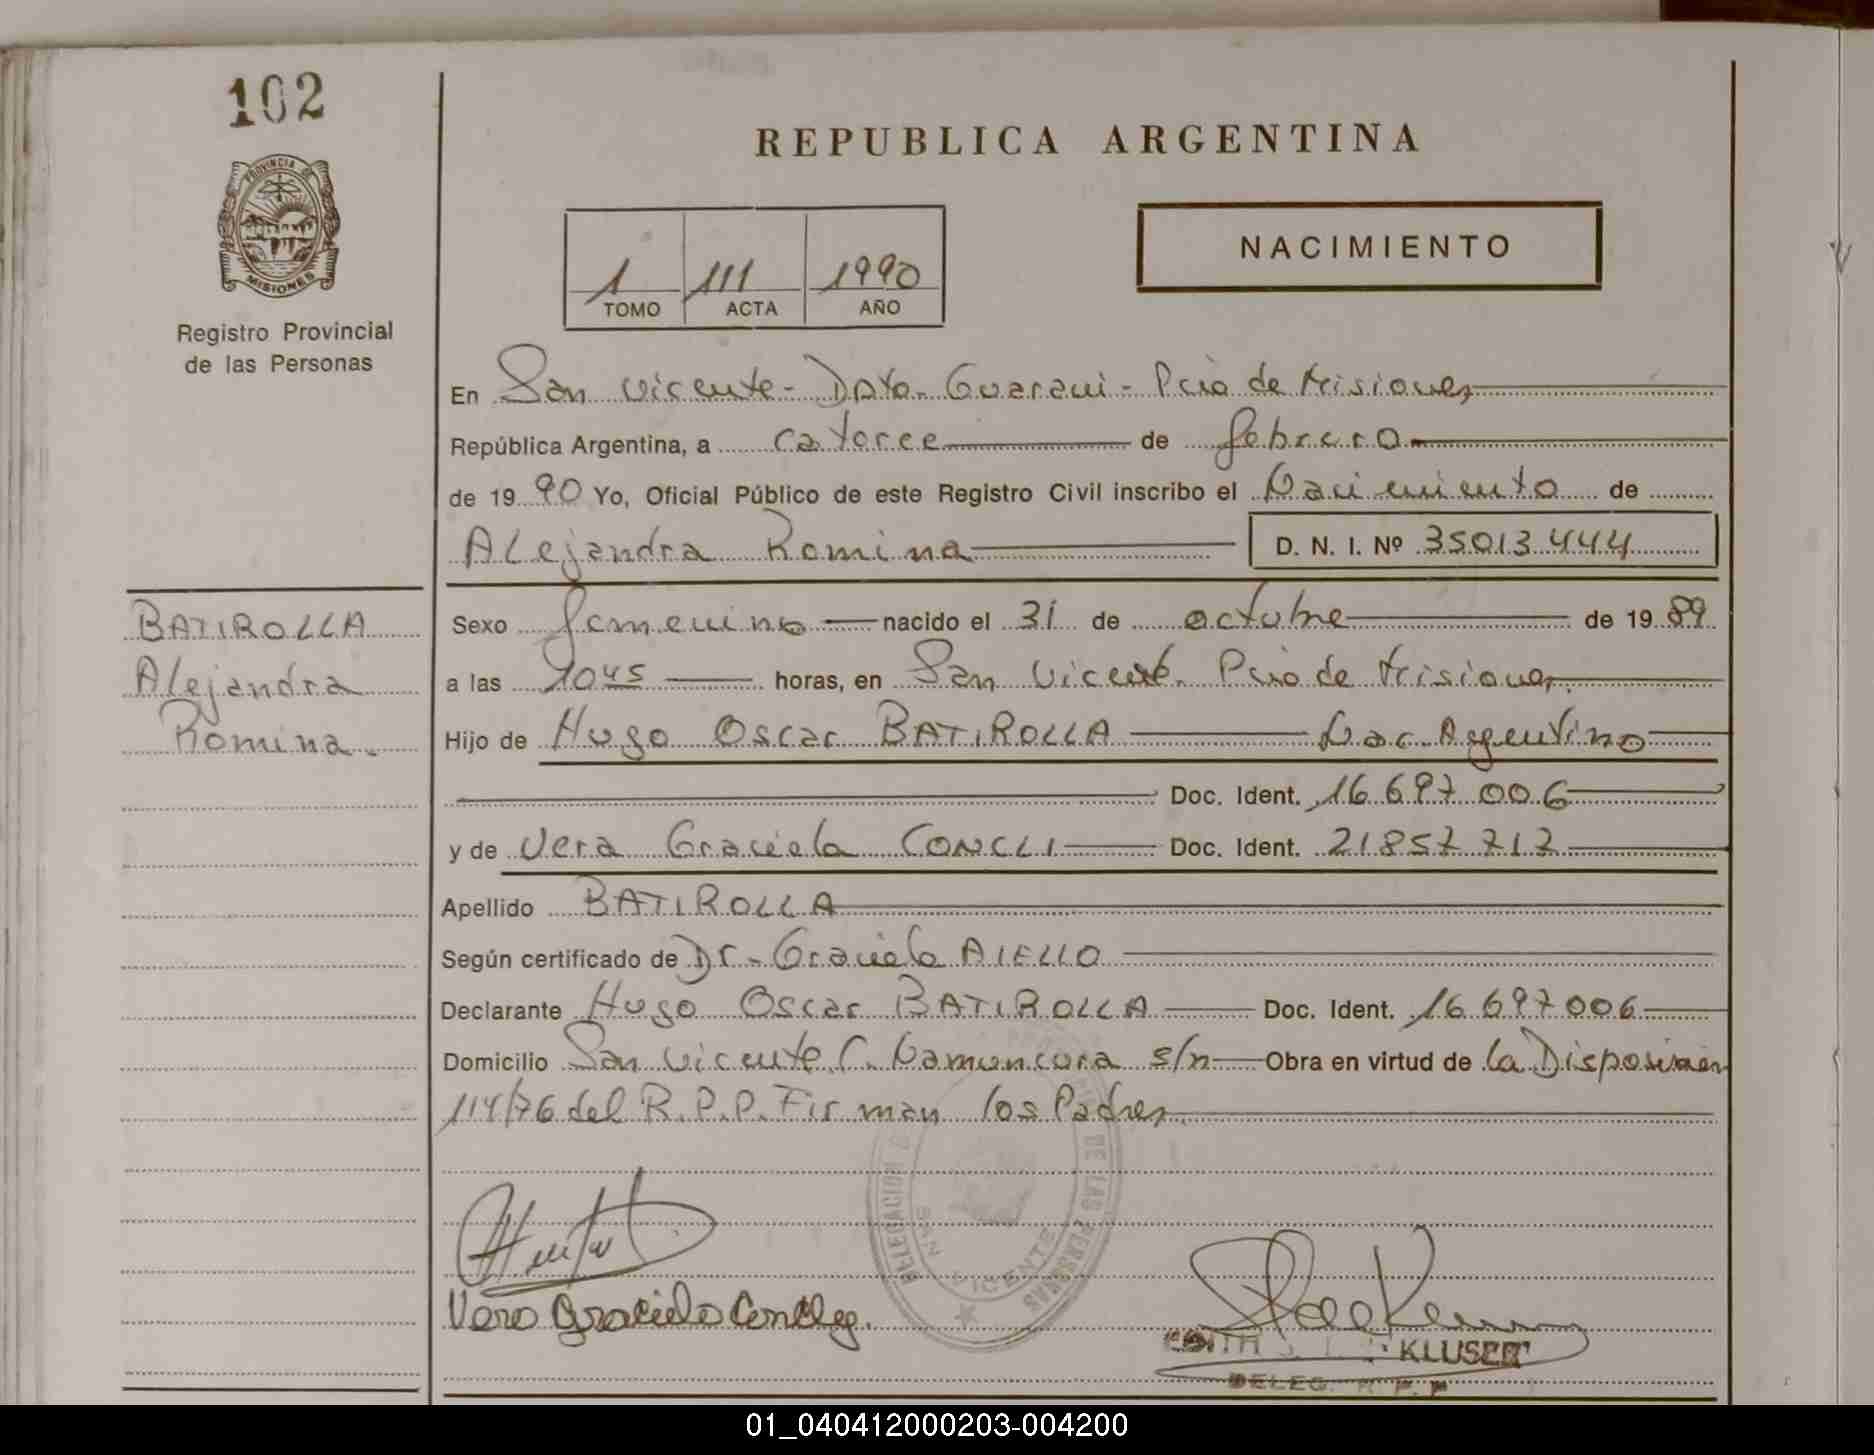 102
PROVINCIA DE
MISIONES
Registro Provincial
de las Personas
REPUBLICA ARGENTINA
1 111 1990
TOMO ACTA AÑO
NACIMIENTO
En San Vicente - Dpto. Guarani - Pcia de Misiones
República Argentina, a catorce de febrero
de 19 90 Yo, Oficial Público de este Registro Civil inscribo el Nacimiento de
Alejandra Romina D. N. I. Nº 35013444
BATIROLLA
Alejandra
Romina.
Sexo femenino nacido el 31 de octubre de 19 89
a las 1045 horas, en San Vicente. Pcia de Misiones.
Hijo de Hugo Oscar BATIROLLA Nac. Argentino
Doc. Ident. 16 697 006
y de Vera Graciela CONCLI Doc. Ident. 21857 717
Apellido BATIROLLA
Según certificado de Dr. Graciela AIELLO
Declarante Hugo Oscar BATIROLLA Doc. Ident. 16 697006
Domicilio San Vicente C. Namuncura s/n Obra en virtud de la Disposición
114/76 del R.P.P. Firman los Padres.
DELEGACION DE LAS PERSONAS
SAN VICENTE
Vera Graciela
KLUSER
DELEG. R. P. P
01_040412000203-004200